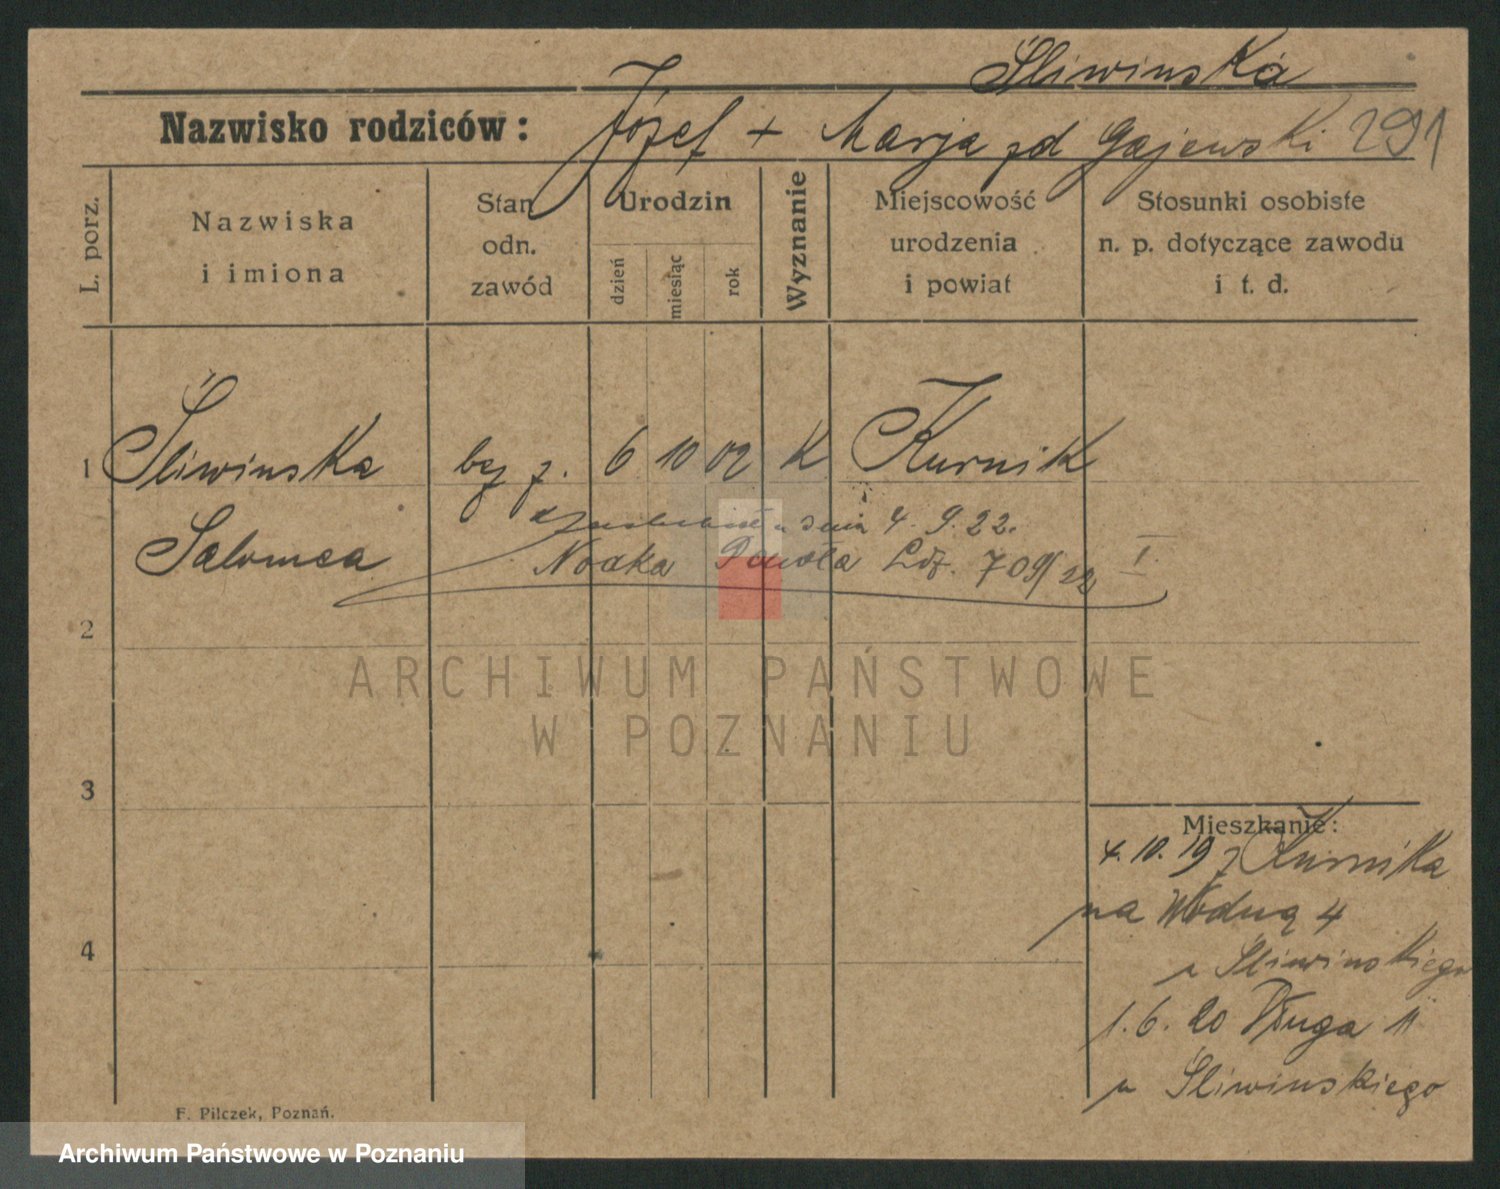 Śliwinska
Nazwisko rodziców: Józef + Marja zd Gajewski 291
L. porz.
Nazwiska
i imiona
Stan
odn.
zawód
Urodzin
dzień
miesiąc
rok
Wyznanie
Miejscowość
urodzenia
i powiat
Stosunki osobiste
n. p. dotyczące zawodu
i t. d.
1 Śliwinska bez z. 6 10 02 K Kurnik
Salomea
dnia 4. 9. 22.
Nodka Pawła 709/22 I
2
3
4
Mieszkanie:
4. 10. 19 z Kurnika
na Wodną 4
u Śliwinskiego
1. 6. 20 Długa 11
u Śliwinskiego
F. Pilczek, Poznań.
ARCHIWUM PAŃSTWOWE
W POZNANIU
Archiwum Państwowe w Poznaniu